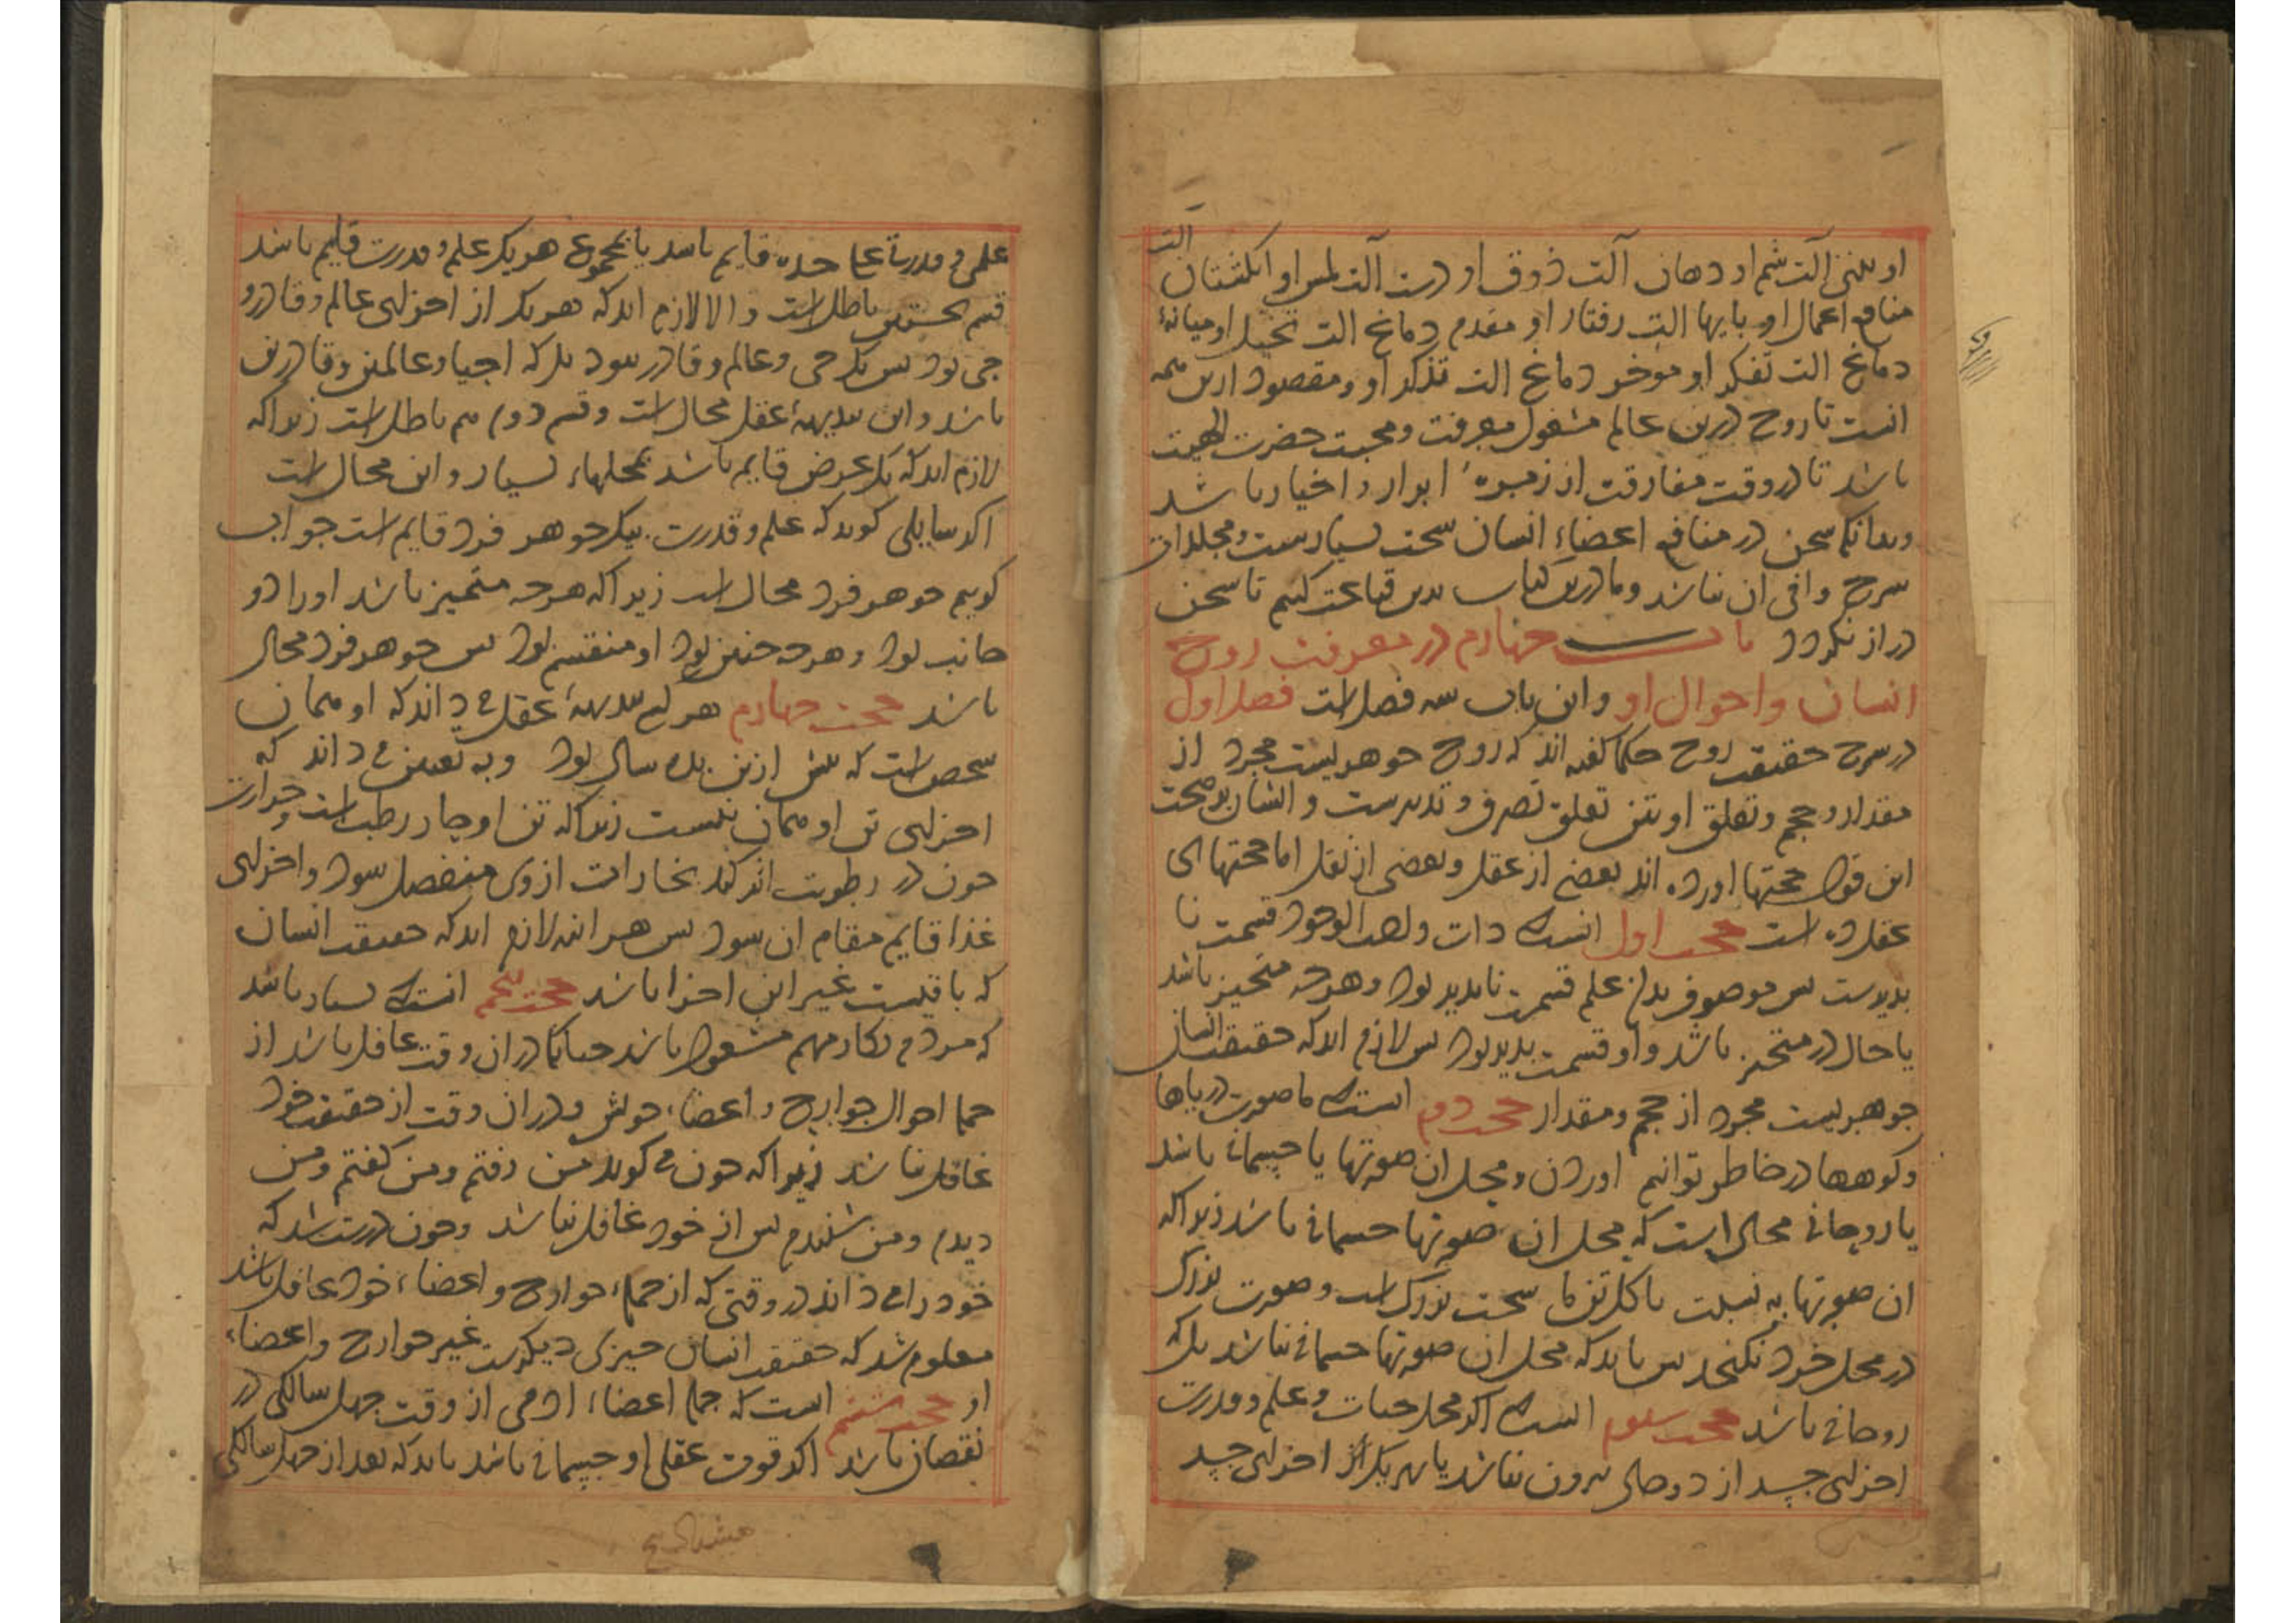 الت
او بینی آلت شم او دهان آلت ذوق او دست آلت لمس او انکشتان
منافع اعمال او پایها الت رفتار او مقدم دماغ الت تخیل او میانهٔ
دماغ الت تفکر او موخر دماغ الت تذکر او و مقصود ازین همه
انست تا روح درین عالم مشغول معرفت و محبت حضرت الهیت
باشد تا در وقت مفارقت از زمرهٔ ابرار و اخیار باشد
وبدانکه سخن در منافع اعضاء انسان سخت بسیارست و مجلدات
شرح وافی ان نباشد و ما درین کتاب بدین قناعت کنیم تا سخن
دراز نکردد باب چهارم در معرفت روح
انسان و احوال او و این باب سه فصل است فصل اول
در شرح حقیقت روح حکما کفته اند که روح جوهریست مجرد از
مقدار و حجم و تعلق او بتن تعلق تصرف و تدبیرست و ایشان بر صحت
این قول حجتها اورده اند بعضی از عقل و بعضی از نقل اما حجتهای
عقل ده است حجت اول انست که ذات واجب الوجود قسمت نا
پذیرست پس موصوف بدان علم قسمت ناپذیر بود و هرچه متحیز باشد
یا حال در متحیز باشد و او قسمت پذیر بود پس لازم اید که حقیقت انسان
جوهریست مجرد از حجم و مقدار حجت دوم انست که ما صورت دریاها
و کوهها در خاطر توانیم اوردن و محل ان صورتها یا جسمانی باشد
یا روحانی محال است که محل ان صورتها جسمانی باشد زیراکه
ان صورتها به نسبت با کل تن ما سخت بزرک است و صورت بزرک
در محل خرد نکنجد پس باید که محل ان صورتها جسمانی نباشد بل که
روحانی باشد حجت سیوم انست که اکر محل حیات و علم و قدرت
اجزای جسد از دو حال بیرون نباشد یا بهر یک از اجزای جسد
علمی و قدرتی علی حده قایم باشد یا بمجموع هر یک علم و قدرت قایم باشد
قسم نخستین باطل است و الا لازم اید که هر یک از اجزای عالم و قادر و
حی بود پس یک حی و عالم و قادر نبود بل که احیا و عالمین و قادرین
باشد و این ببدیههٔ عقل محال است و قسم دوم هم باطل است زیراکه
لازم اید که یک عرض قایم باشد بمحلهاء بسیار و این محال است
اکر سایلی کوید که علم و قدرت بیک جوهر فرد قایم است جواب
کوییم جوهر فرد محال است زیراکه هرچه متحیز باشد او را دو
جانب بود و هرچه چنین بود او منقسم بود پس جوهر فرد محال
باشد حجت چهارم هر کس ببدیههٔ عقل می داند که او همان
شخص است که پیش ازین بده سال بود و به تعین می داند که
اجزای تن او همان نیست زیراکه تن او حار رطب است و حرارت
چون در رطوبت اثر کند بخارات از وی منفصل شود و اجزای
غذا قایم مقام ان شود پس هراینه لازم اید که حقیقت انسان
که باقیست غیر این اجزا باشد حجت پنجم انست که بسیار باشد
که مردم بکار مهم مشغول باشد چنانکه در ان وقت غافل باشد از
جملهٔ احوال جوارح و اعضاء خویش و در ان وقت از حقیقت خود
غافل نباشد زیراکه چون می کوید من رفتم و من کفتم و من
دیدم و من شنیدم پس از خود غافل نباشد و چون درست شد که
خود را می داند در وقتی که از جملهٔ جوارح و اعضاء خود غافل باشد
معلوم شد که حقیقت انسان چیزی دیکرست غیر جوارح و اعضاء
او حجت ششم انست که جملهٔ اعضاء ادمی از وقت چهل سالکی در
نقصان باشد اکر قوت عقلی او جسمانی باشد باید که بعد از چهل سالکی